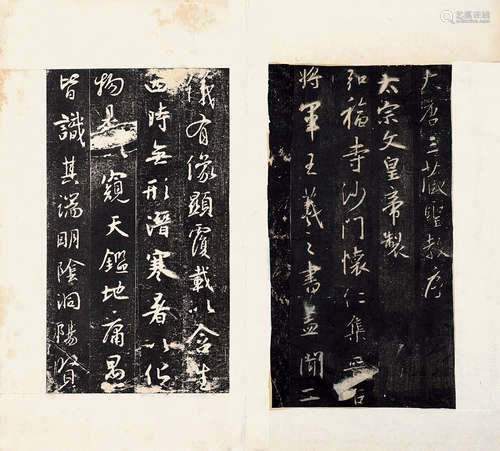 大唐三藏聖教序
太宗文皇帝製
弘福寺沙門懷仁集晉右
將軍王羲之書蓋聞二
儀有像顯覆載以含生
四時無形潛寒暑以化
物是以窺天鑑地庸愚
皆識其端明陰洞陽賢